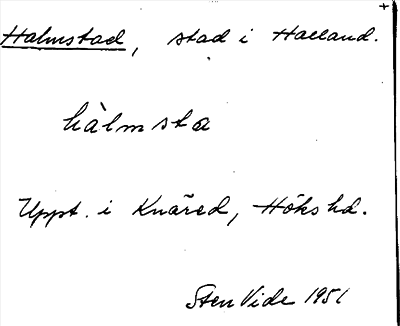 +
Halmstad, stad i Halland.
hàlmsta
Uppt. i Knäred, Höks hd.
Sten Vide 1951